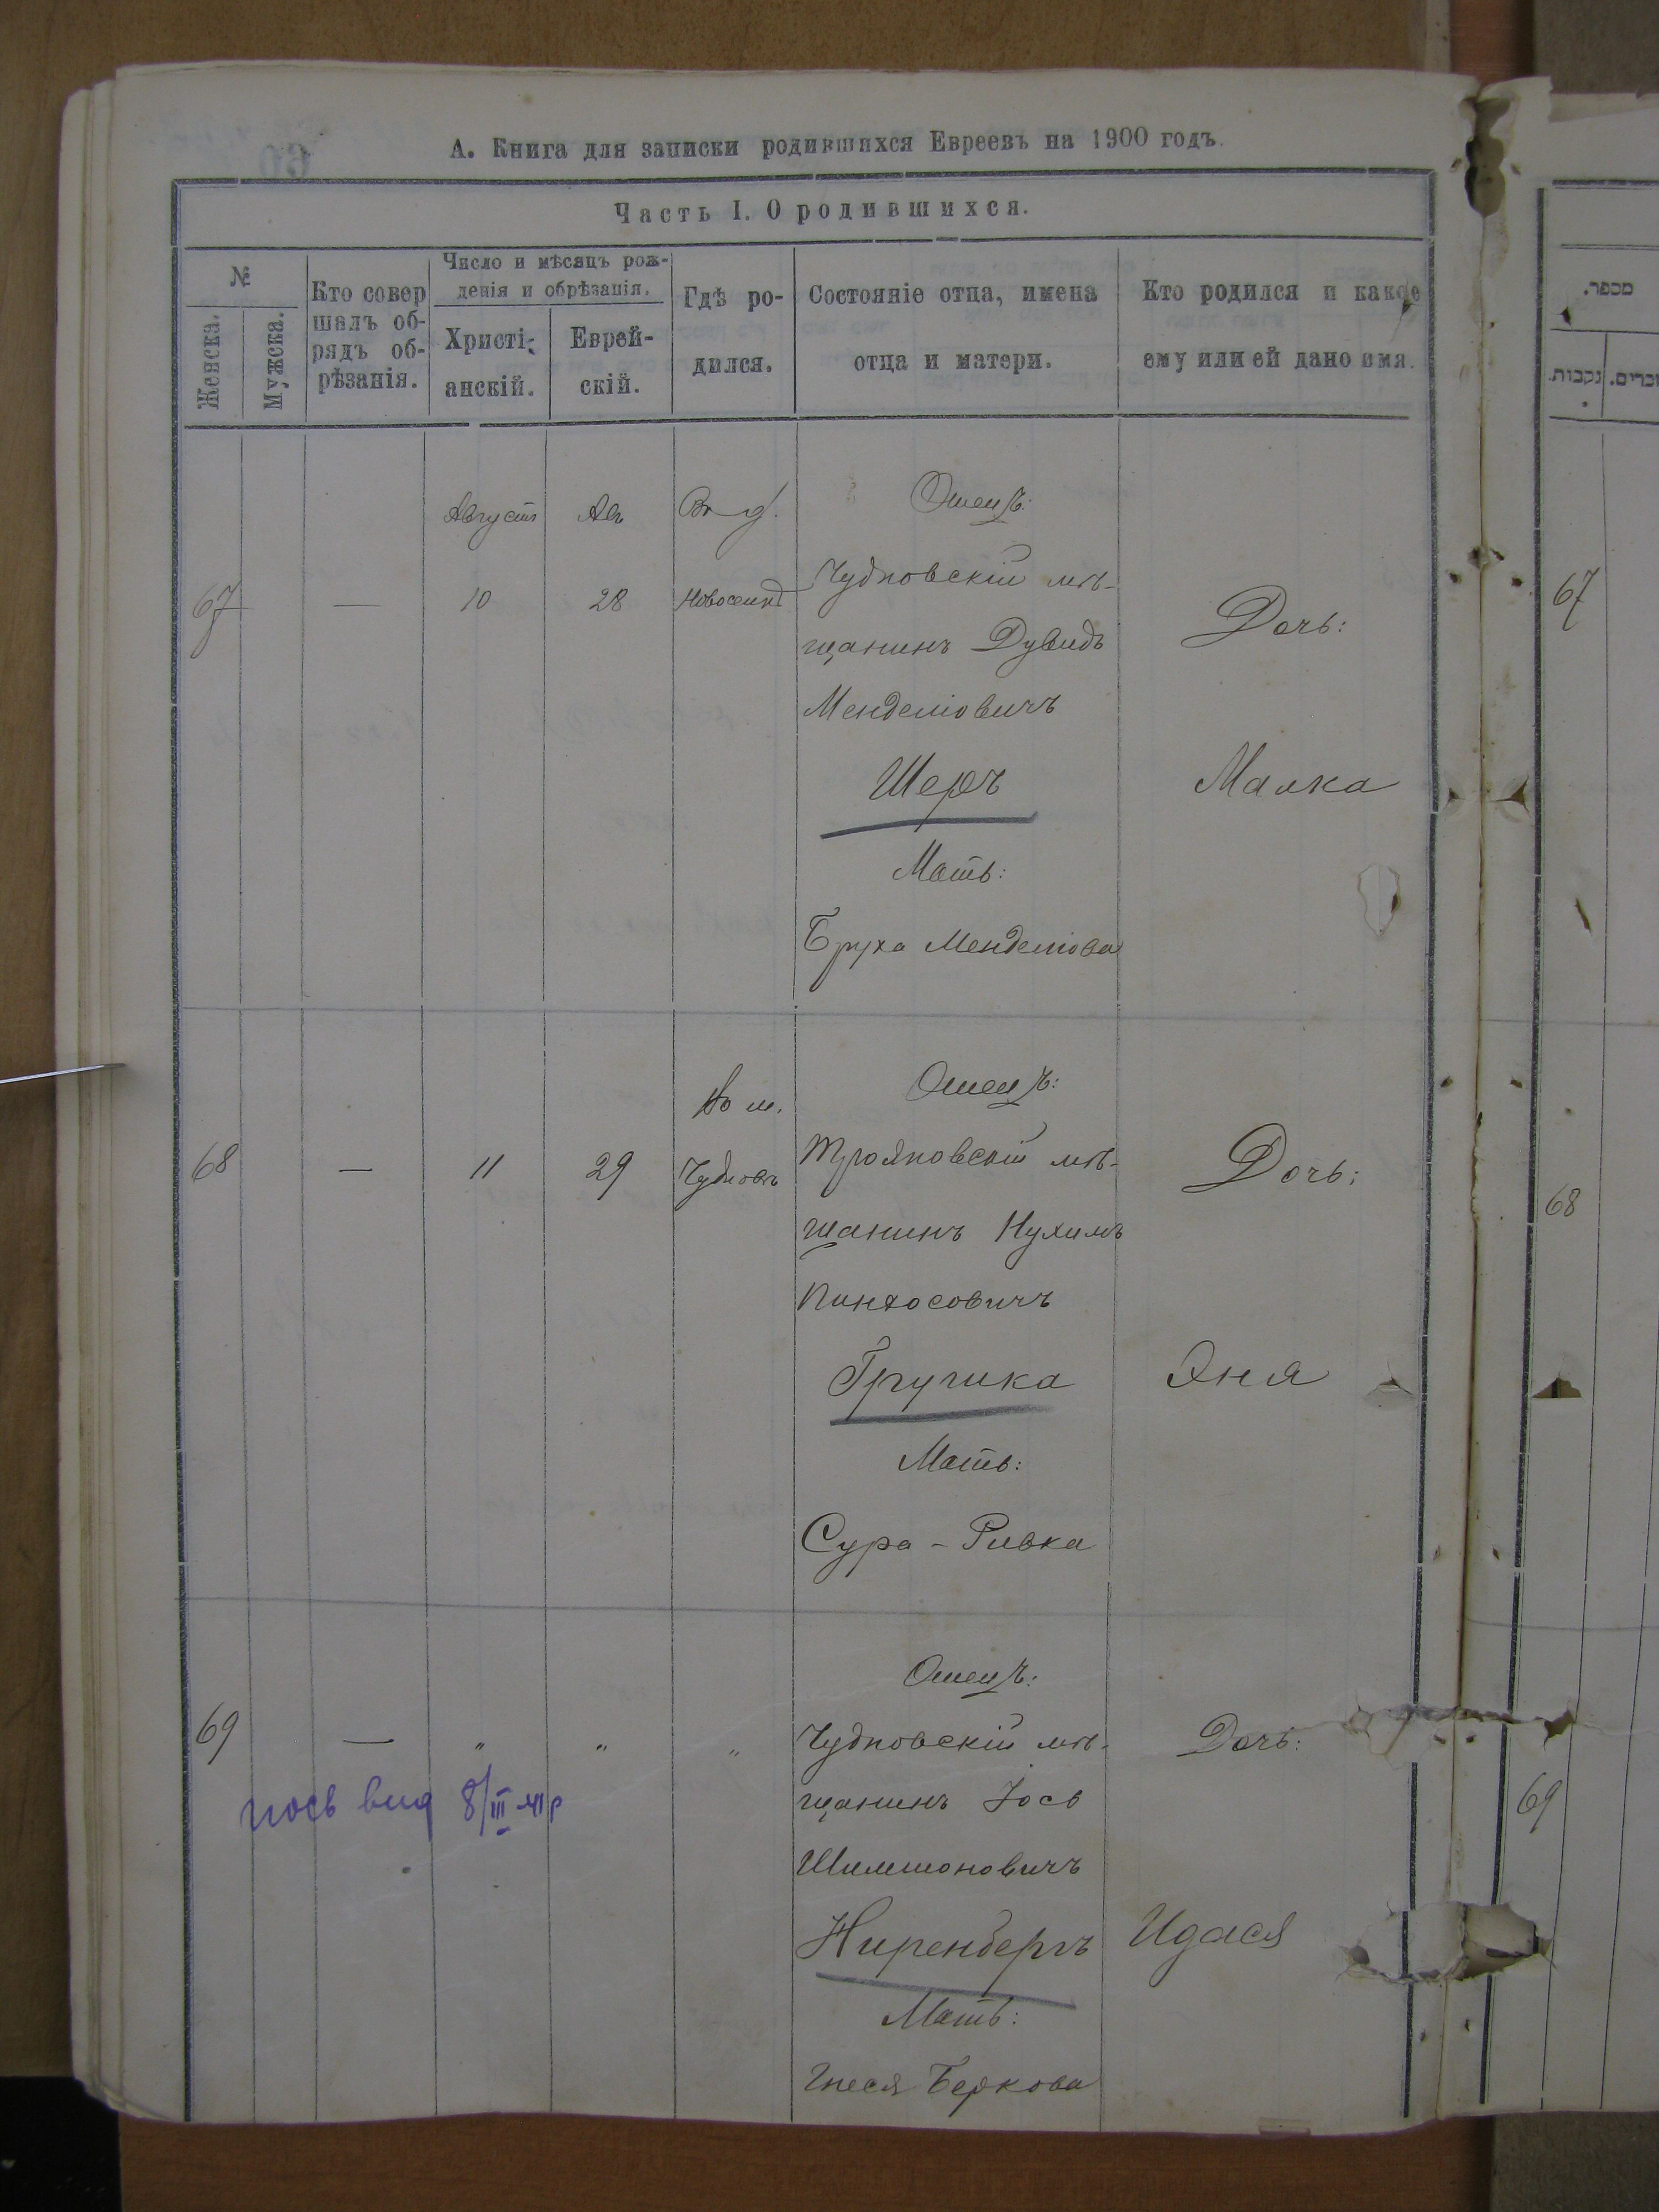 А. Книга для записки родившихся Евреевъ на 1900 годъ.
Часть I. О родившихся.
№
Женска.
Мужска.
Кто совер
шалъ об-
рядъ об-
рѣзанія.
Число и мѣсяцъ рож-
денія и обрѣзанія.
Христі-
анскій.
Еврей-
скій.
Гдѣ ро-
дился.
Состояніе отца, имена
отца и матери.
Кто родился и какое
ему или ей дано имя.
מספר.
נקבות.
זכרים.
67
—
Августъ
10
Ав
28
Въ д.
Отецъ:
Чудновскій мѣ-
щанинъ Дувидъ
Менделіовичъ
Шеръ
Мать:
Бруха Менделіова
Дочь:
Малка
67
68
—
11
29
Во м.
Чудновъ
Отецъ:
Трояновскій мѣ-
щанинъ Нухимъ
Пинхосовичъ
Грушка
Мать:
Сура - Ривка
Дочь:
Эня
68
69
—
"
"
"
Отецъ:
Чудновскій мѣ-
щанинъ Іось
Шимшоновичъ
Ниренбергъ
Мать:
Беркова
Дочь:
Идася
69
вид 8/III